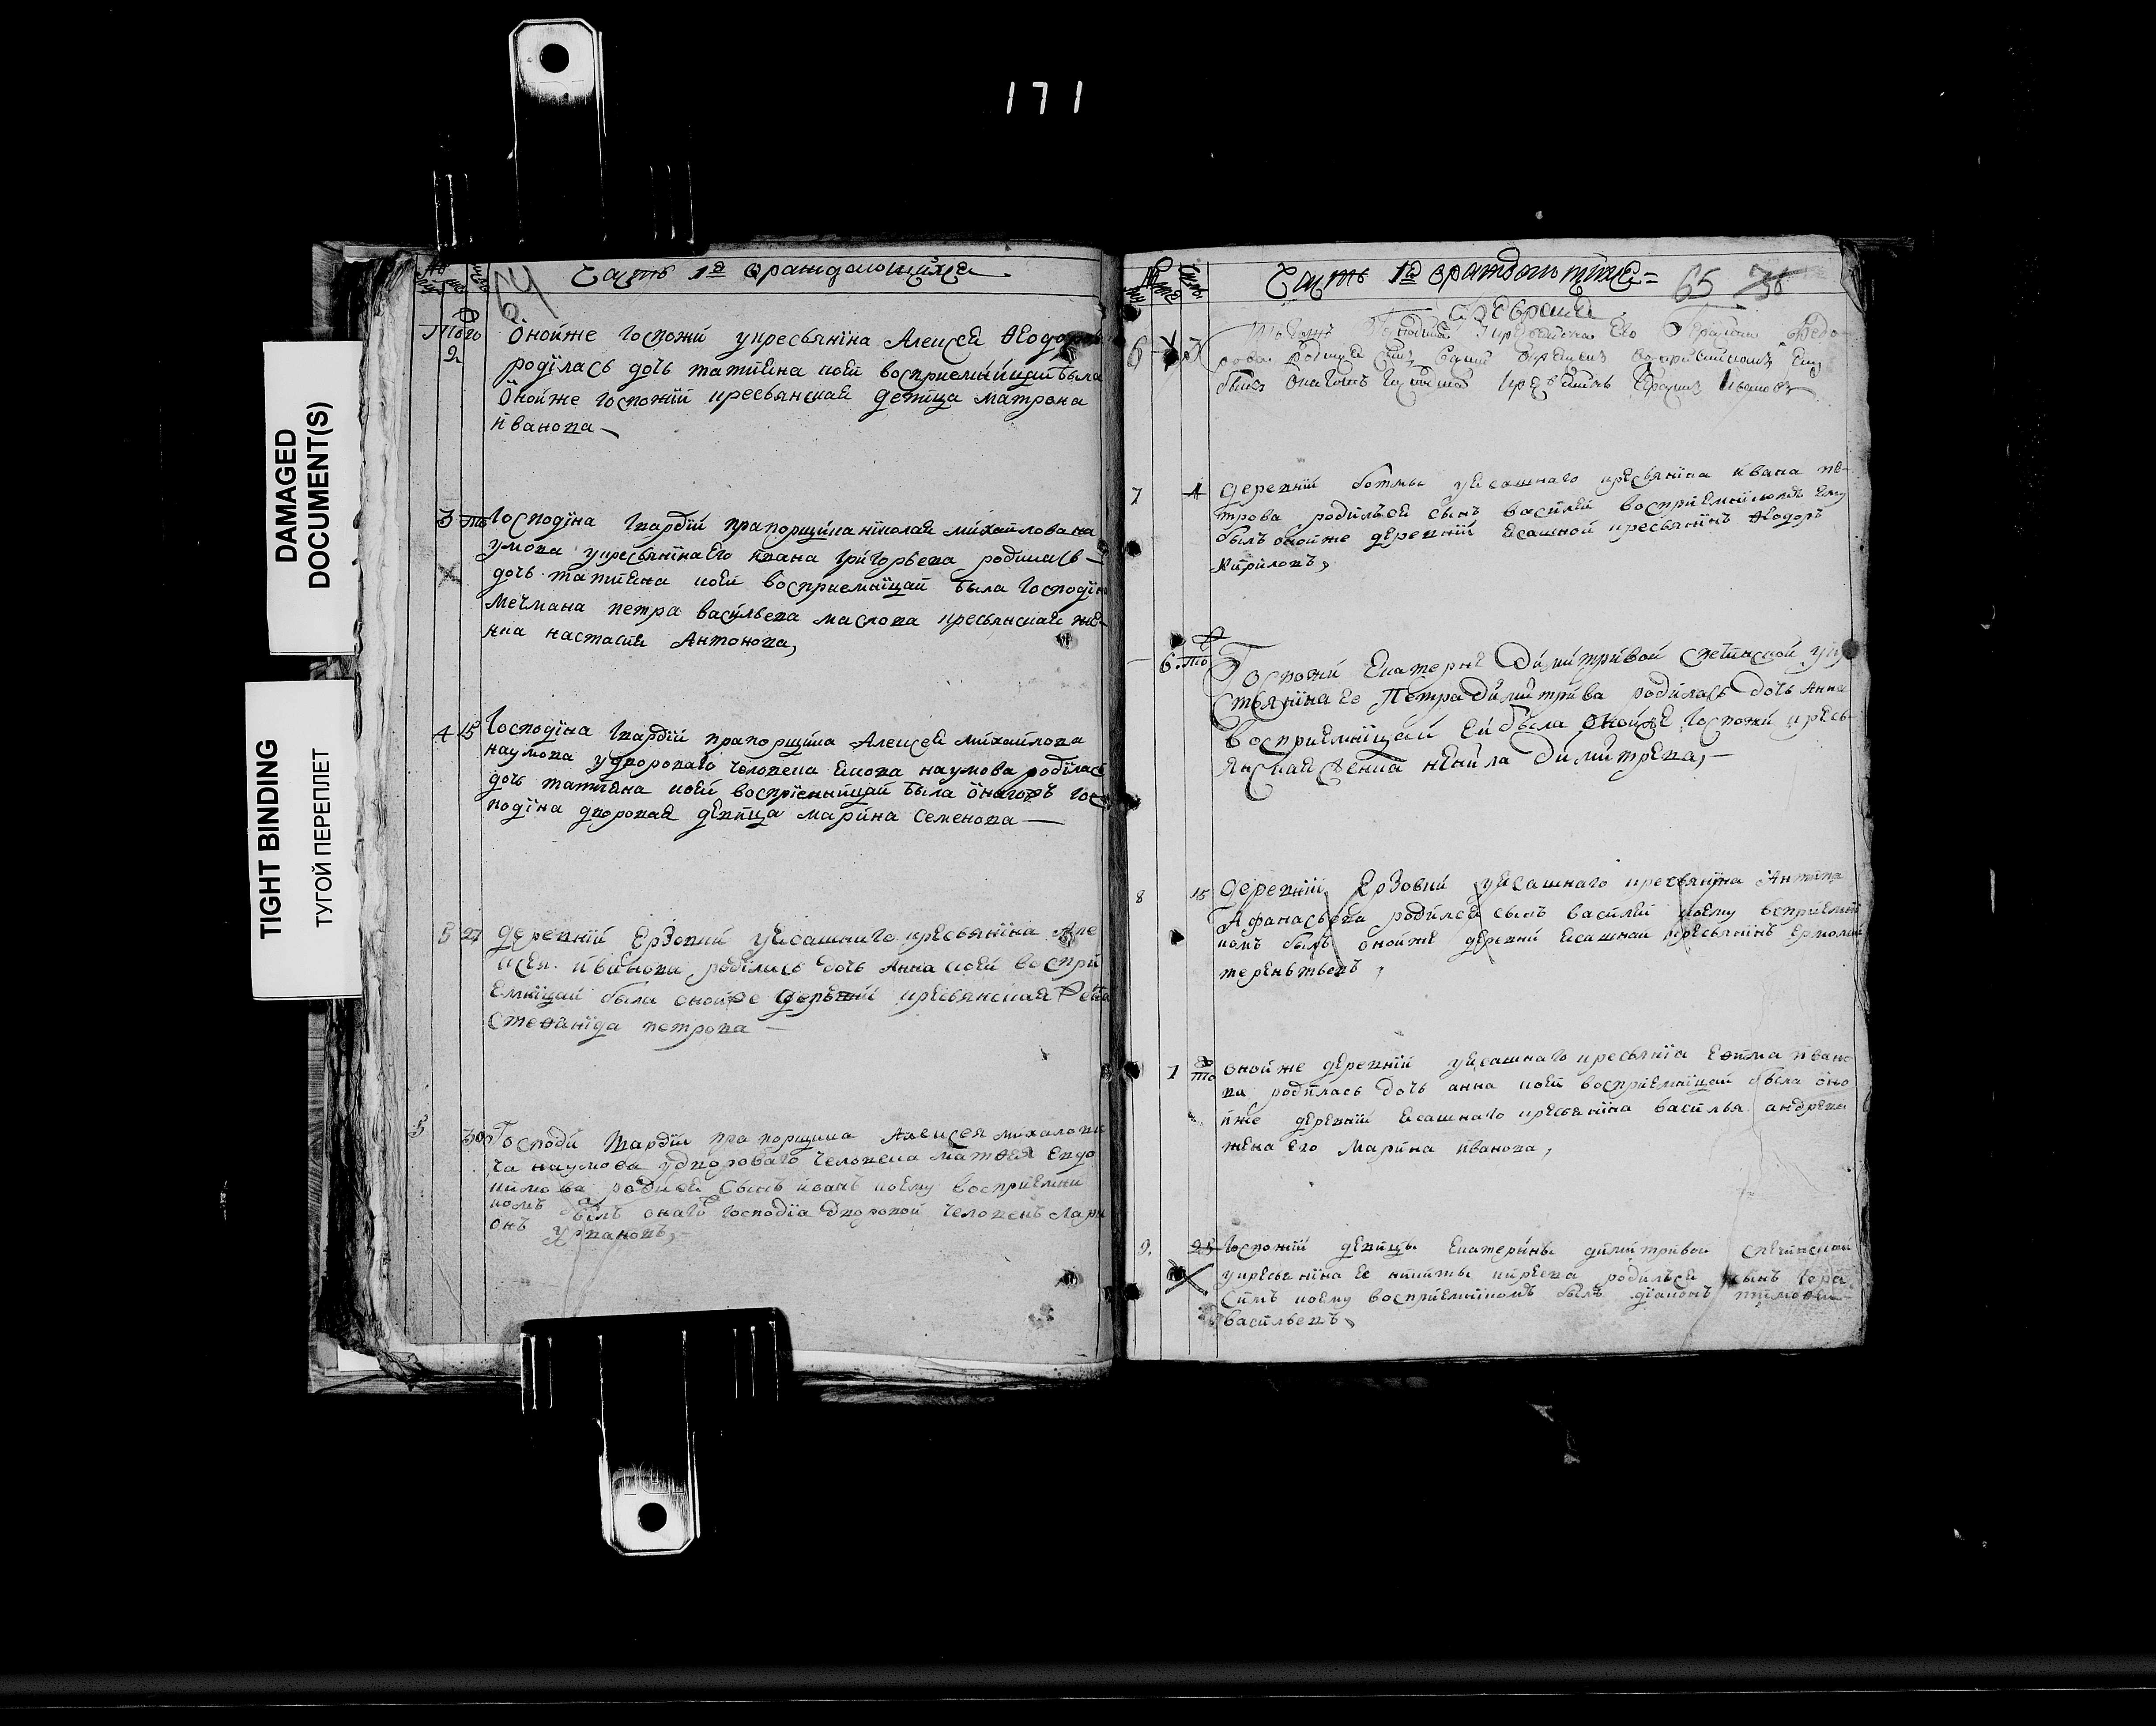 171
DAMAGED
DOCUMENT(S)
TIGHT BINDING
ТУГОЙ ПЕРЕПЛЕТ
64
Часть 1я ораждающихся
Того
2
Онойже госпожи укресьянина Алексея Ѳедоров
родилась дочь татияна коей восприемницай была
Онойже госпожи кресьянская девица матрона
иванова
3 то
Господина гвардии прапорщика николая михайлова на
умова укресьянина Его ивана григорьева родилась
дочь татияна коей восприемницай была господин
мечмана петра васильева маслова кресьянская же-
нка настасия Антонова,
4 15
Господина гвардии прапорщика Алексея михайлова
наумова удворового человека наумова родилась
дочь татияна коей восприемницай была онагожъ гос
подина дворовая девица марина семенова
5 27
деревни Ерзовки уясашнаго кресьянина Але
ксея иванова родилась дочь Анна коей воспри
емницай была онойже деревни кресьянская
стеѳанида петрова
5
30
Господи гвардии прапорщика Алексея михалови
ча наумова удвороваго человека матѳея Евдо
кимова родился сынъ иванъ коему восприемни
комъ былъ онаго господиа дворовой человекъ Лари
онъ
Часть 1я ораждающихся
65 78
Февраля
6 3
Его Ѳедо
рова родился сынъ восприемникомъ Ему
былъ
7 4
деревни ботмы уясашнаго кресьянина ивана пе-
трова родился сынъ василей восприемникомъ Ему
былъ онойже деревни ясашной кресьянинъ Ѳедоръ
Кириловъ,
6. то
Госпожи Екатерны Димитривой спечинской укре
стьянина Ее Петра Димитрива родилась дочь Анна
восприемницай Ей была онойже госпожи кресь
янская женка ненила Димитрева,
8 15
деревни Ерзовки уясашнаго кресьянина Антипа
Афанасьева родился сынъ василей коему восприемни
комъ былъ онойже деревни ясашнай кресьянинъ Ермолай
терентьевъ,
7 то
онойже деревни уясашнаго кресьяниа Еѳима ивано
ва родилась дочь анна коей восприемницай была оно
йже деревни ясашнаго кресьянина василья андреева
жена его Марина иванова,
9. 25
Госпожи девицы Екатерины димитривой спечинской
укресьянина Ее никиты киреева родился сынъ гера
симъ коему восприемникомъ былъ дiаконъ тимоѳей
васильевъ,